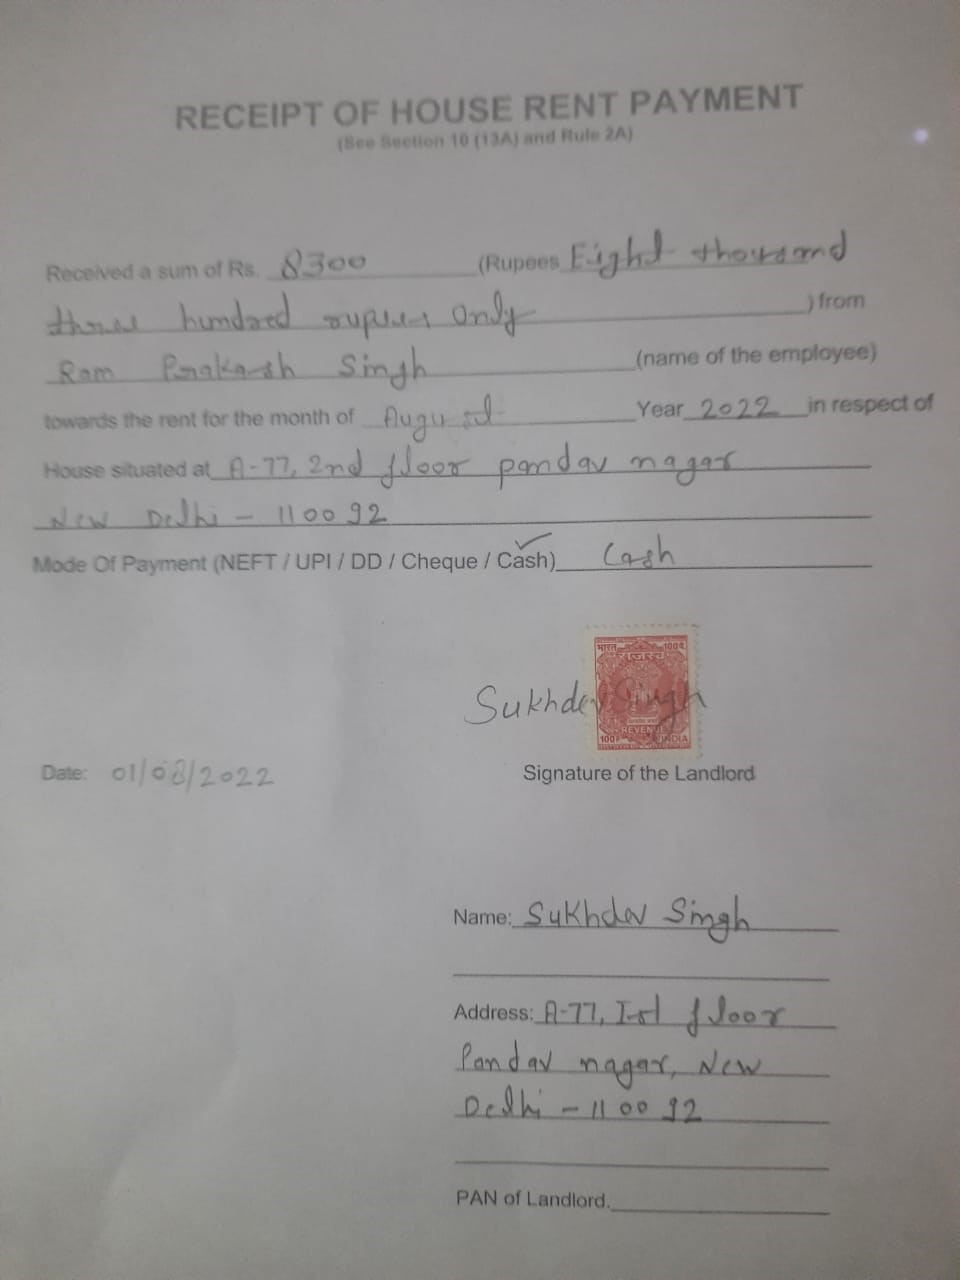 RECEIPT OF HOUSE RENT PAYMENT
(See Section 10 (13A) and Rule 2A)
Received a sum of Rs. 8300 (Rupees Eight thousand
three hundred rupees Only ) from
Ram Prakash Singh (name of the employee)
towards the rent for the month of August Year 2022 in respect of
House situated at A-77, 2nd floor pandav nagar
New Delhi - 110092
Mode Of Payment (NEFT / UPI / DD / Cheque / Cash) Cash
भारत 100P.
राजस्व
Sukhdev Singh
REVENUE
100P. INDIA
Date: 01/08/2022 Signature of the Landlord
Name: Sukhdev Singh
Address: A-77, Ist floor
Pandav nagar, New
Delhi - 110092
PAN of Landlord.